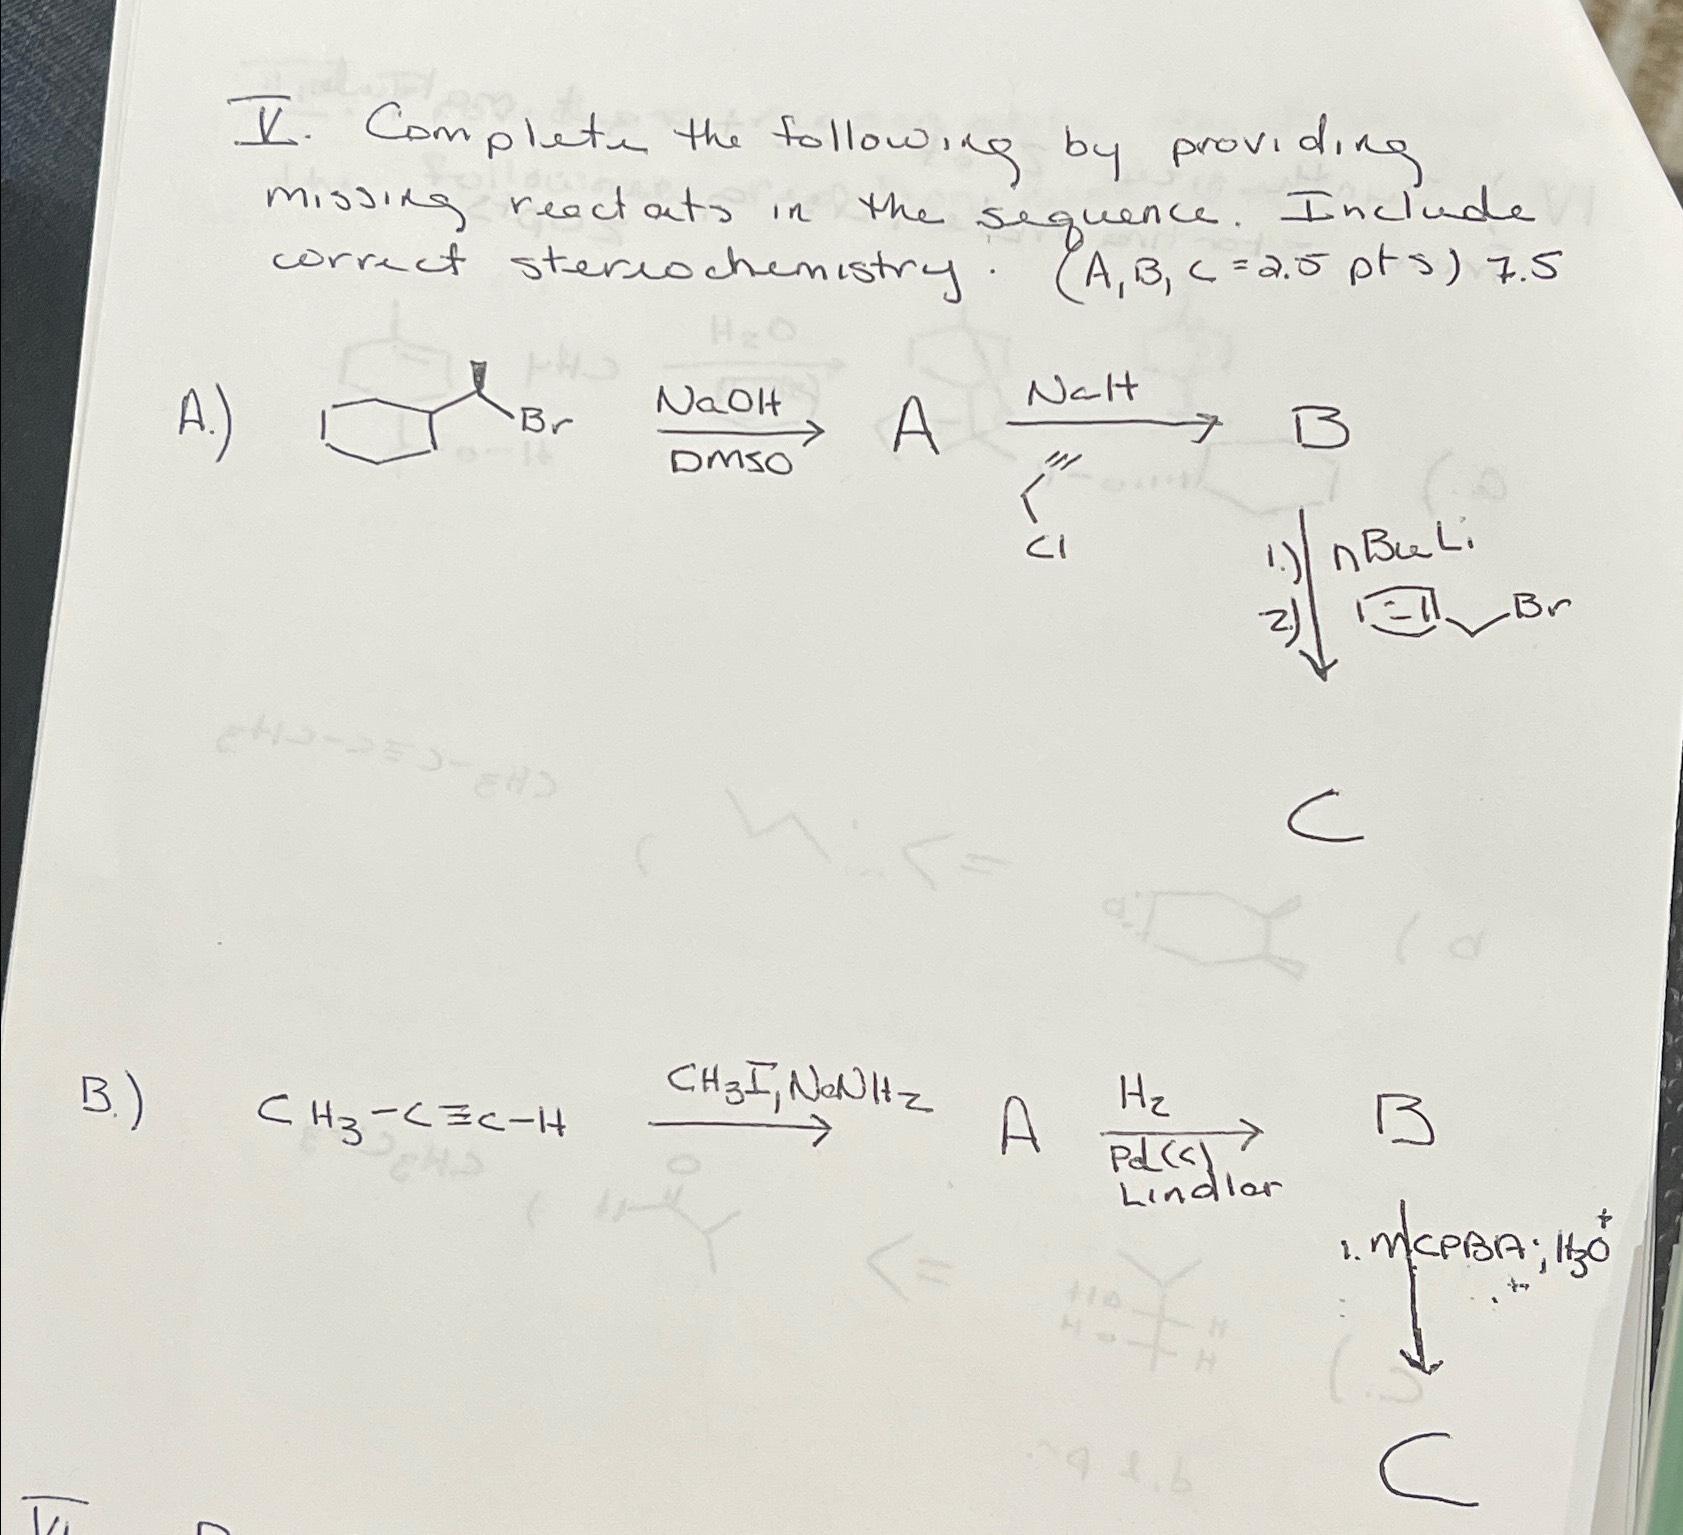 V. Complete the following by providing
missing reactats in the sequence. Include
correct stereochemistry. (A, B, C = 2.5 pts) 7.5
A.) Br NaOH DMSO A NaH Cl B
1.) nBuLi
2) Br
C
B.) CH3-C≡C-H CH3I, NaNH2 A H2 Pd(C) Lindlar B
1. mCPBA; H3O+
C
VI